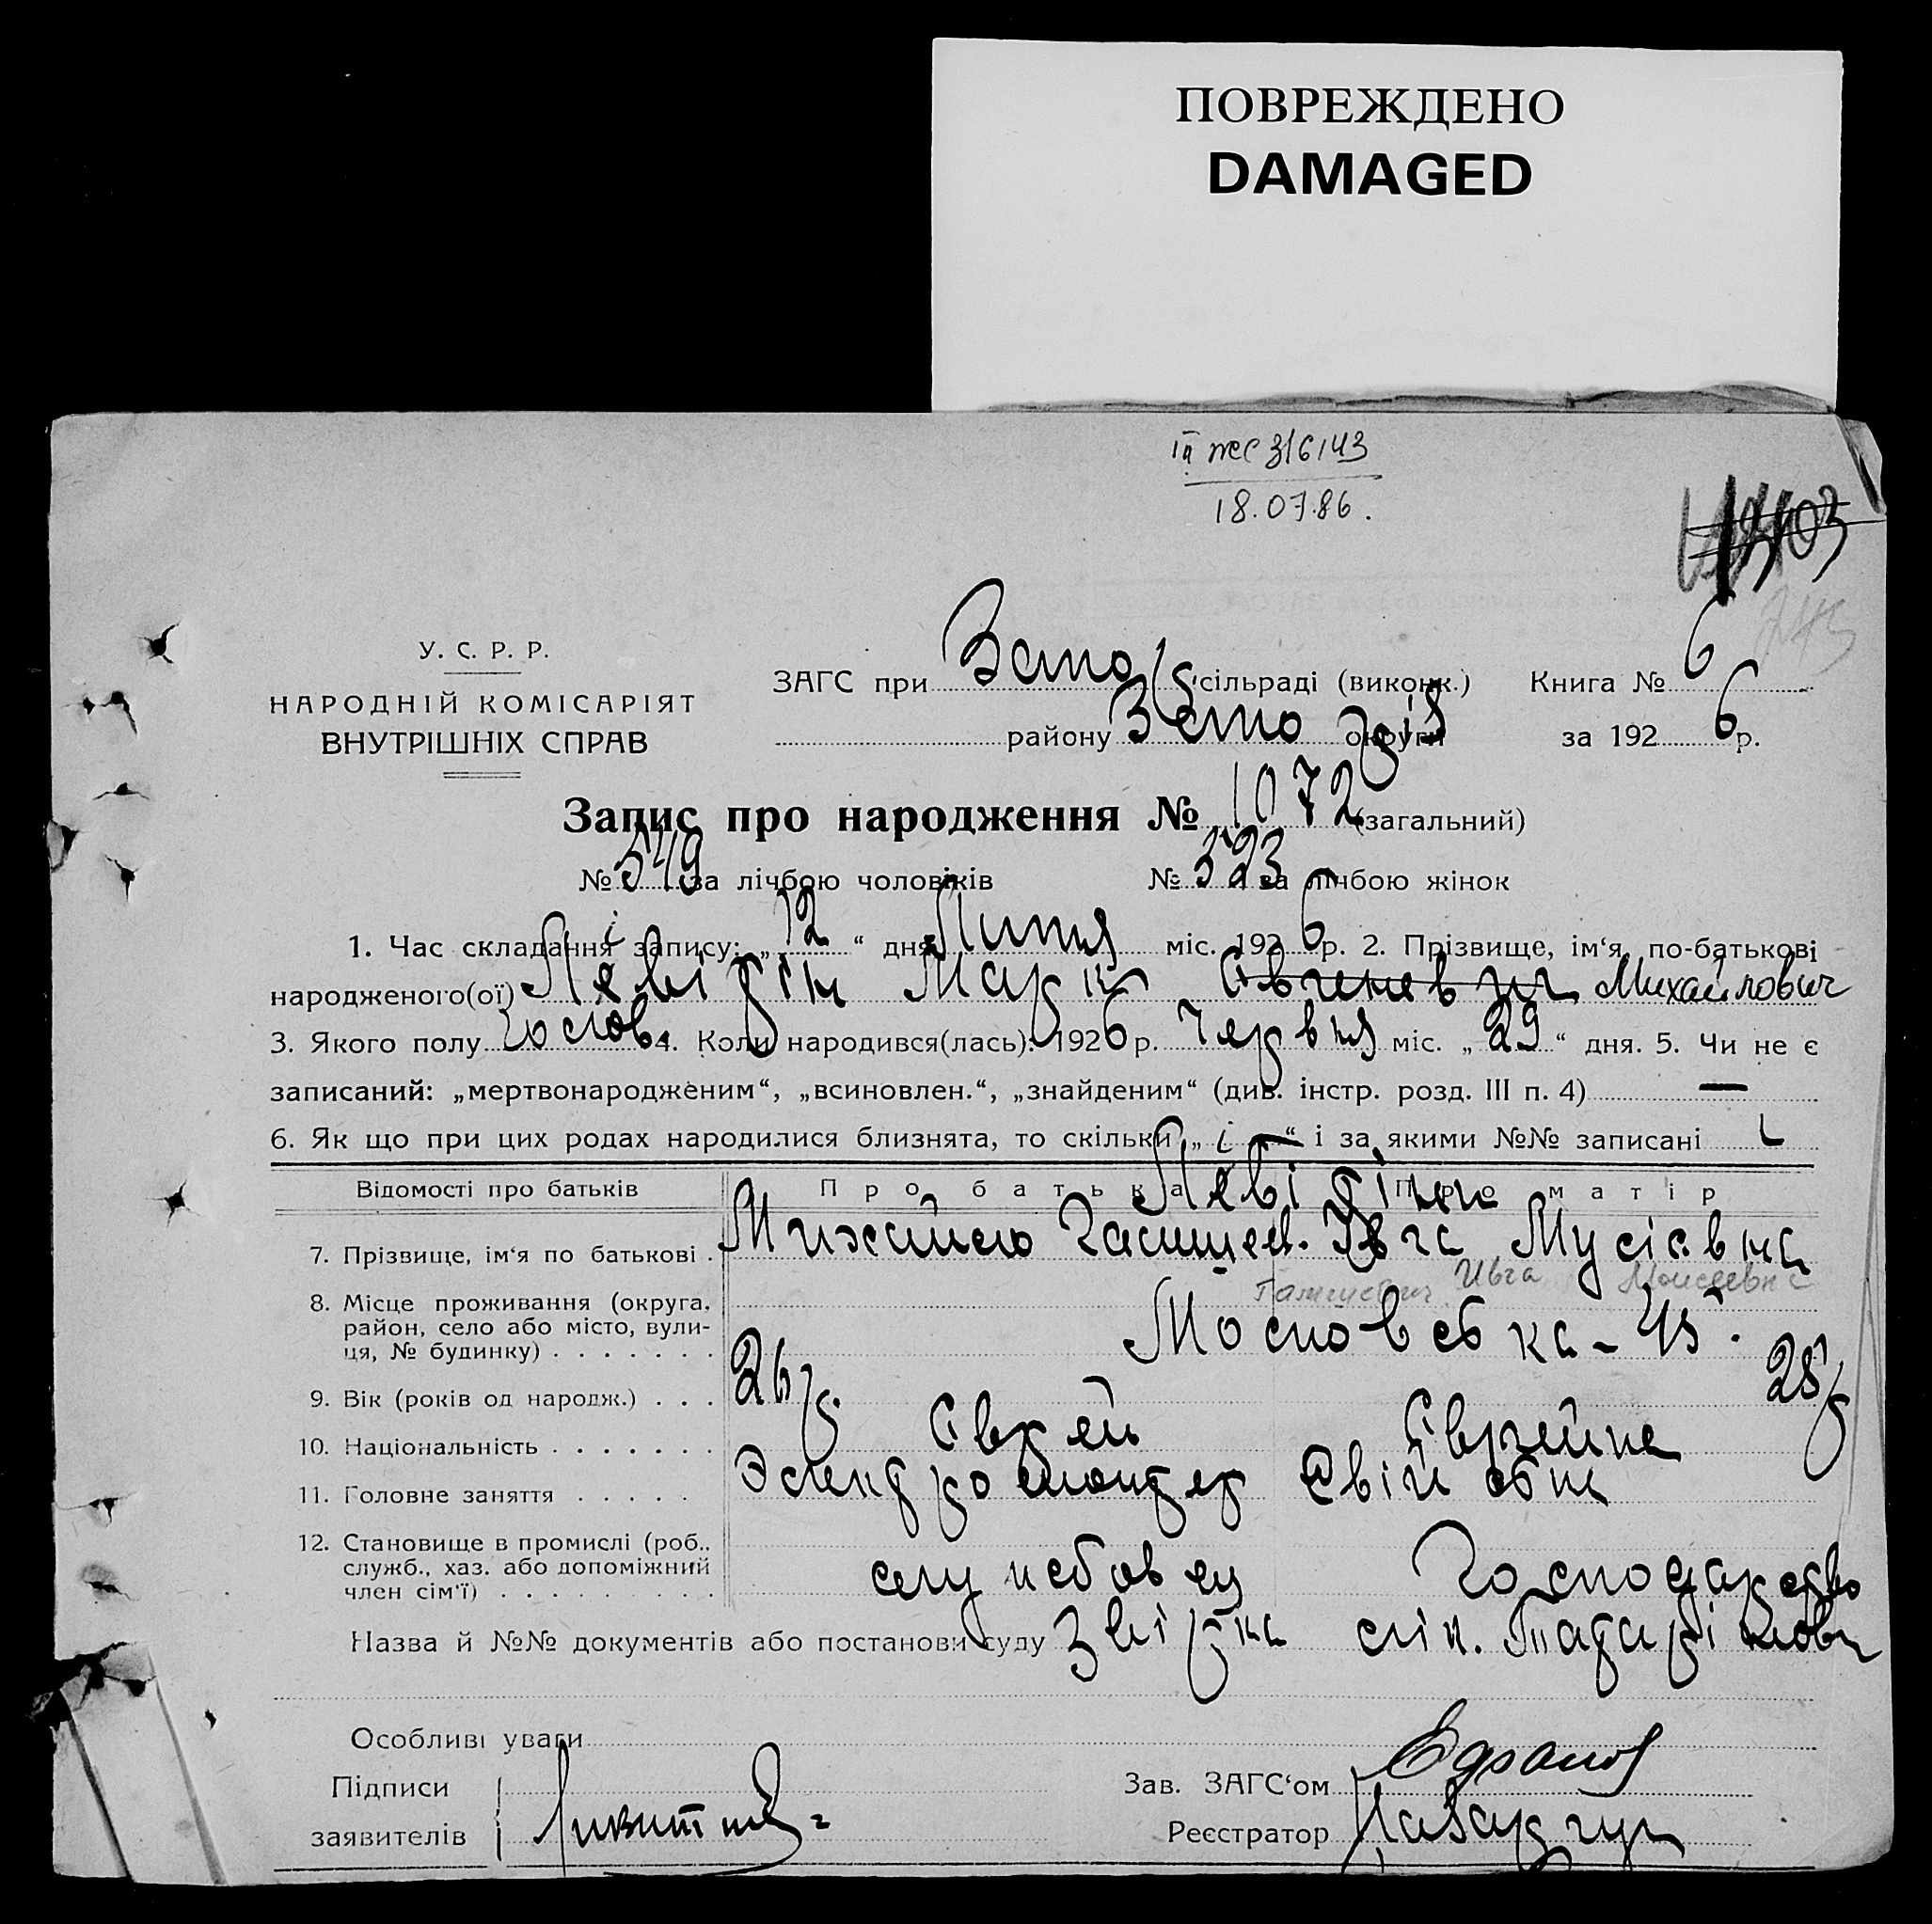 ПОВРЕЖДЕНО
DAMAGED
18.07.86.
У. С. Р. Р.
НАРОДНІЙ КОМІСАРІЯТ
ВНУТРІШНІХ СПРАВ
ЗАГС при сільраді (виконк.) Книга № 6
району округи за 1926р.
Запис про народження № 1072 (загальний)
№ 549 за лічбою чоловіків № 523 за лічбою жінок
1. Час складання запису: „12“ дня Липня міс. 1926р. 2. Прізвище, ім‘я, по-батькові
народженого(ої) Левітін Марк Євгеневич Михайлович
3. Якого полу чолов. 4. Коли народився(лась): 1926р. Червня міс. „29“ дня. 5. Чи не є
записаний: „мертвонародженим“, „всиновлен.“, „знайденим“ (див. інстр. розд. III п. 4) —
6. Як що при цих родах народилися близнята, то скільки „ “ і за якими №№ записані
Відомості про батьків Про батька Про матір
Левітіни
7. Прізвище, ім‘я по батькові . Михайло Євга Мусієвна
Ивга Моисеевна
8. Місце проживання (округа, район, село або місто, вули-ця, № будинку) . . . . . . . Московська - 45.
9. Вік (років од народж.) . . . 26 р. 25 р
10. Національність . . . . . . . Єврей Єврейка
11. Головне заняття . . . . . Электромонтер Двійська
12. Становище в промислі (роб., служб., хаз. або допоміжний член сім‘ї) . . . . . . . . . службовец Господарство
Назва й №№ документів або постанови суду
Особливі уваги
Підписи Зав. ЗАГС‘ом
заявителів Реєстратор